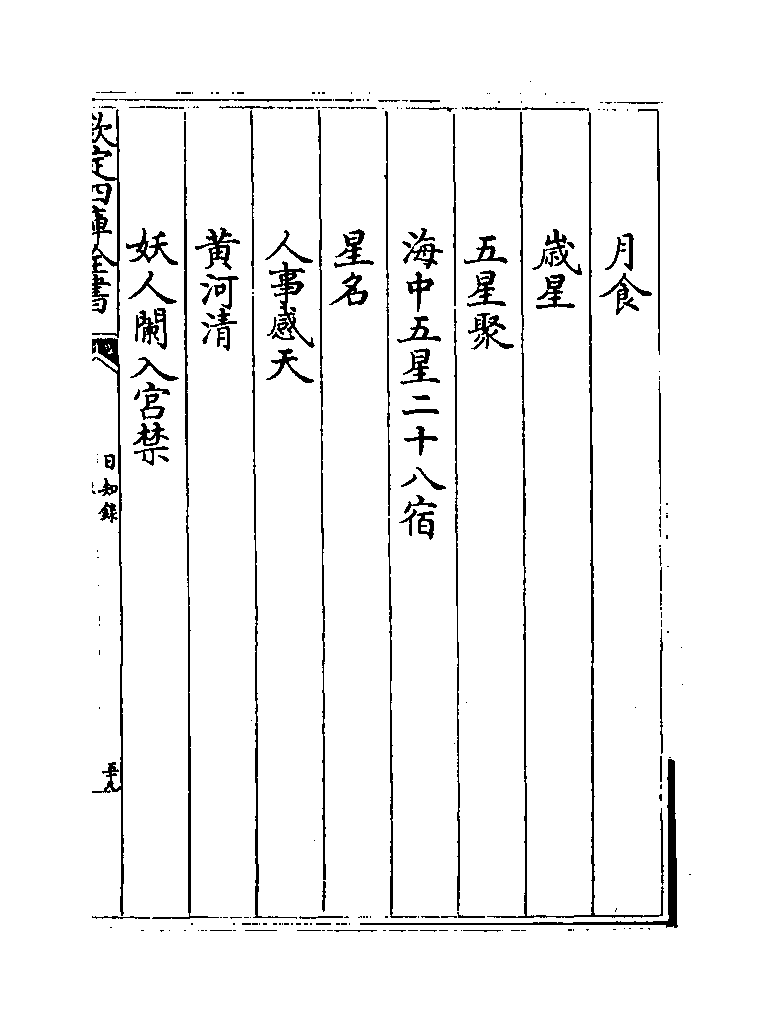 月食
歳星
五星聚
海中五星二十八宿
星名
人事感天
黄河清
妖人闌入宫禁
欽定四庫全書
日知錄
五十九